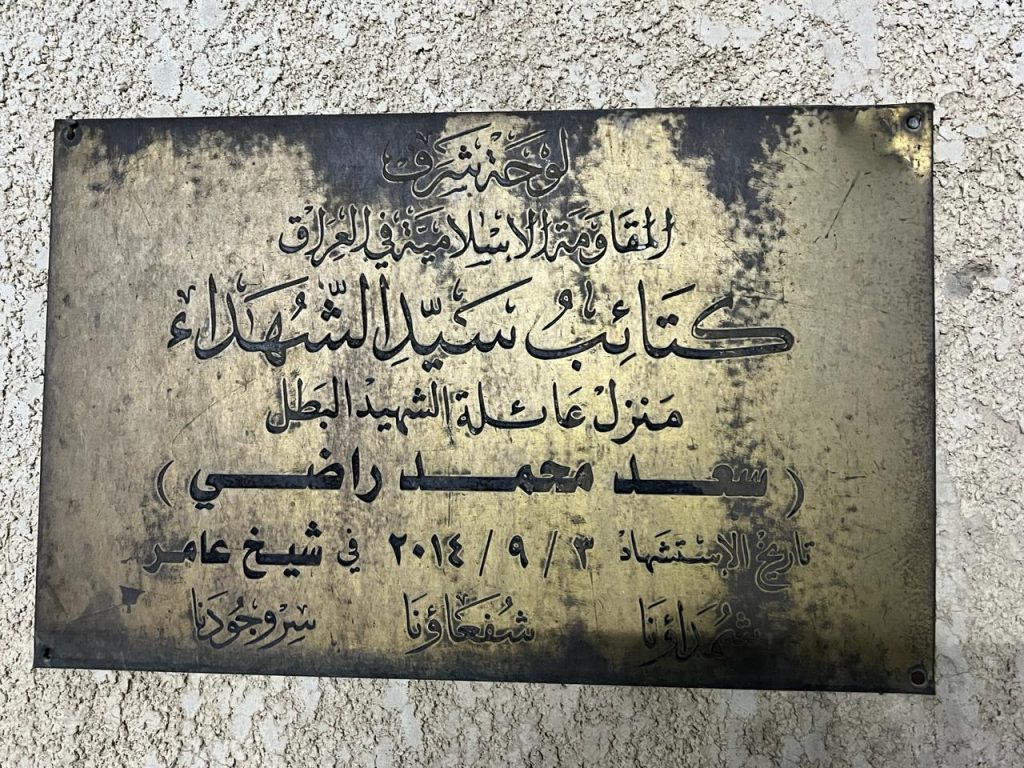 لوحة شرف
المقاومة الاسلامية في العراق
كتائب سيد الشهداء
منزل عائلة الشهيد البطل
( سعد محمد راضي )
تاريخ الاستشهاد ٣ / ٩ / ٢٠١٤ في شيخ عامر
شهداؤنا شفعاؤنا سر وجودنا